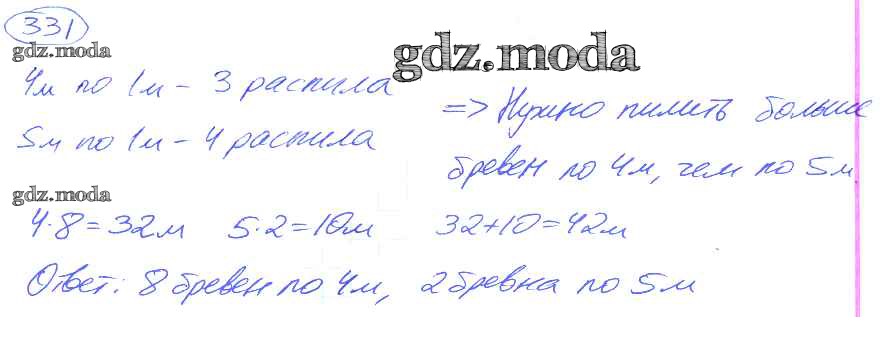 331
gdz.moda
gdz.moda
4м по 1м - 3 распила
5м по 1м - 4 распила
=> Нужно пилить больше
бревен по 4м, чем по 5м
gdz.moda
4·8=32м 5·2=10м 32+10=42м
Ответ: 8 бревен по 4м, 2 бревна по 5м